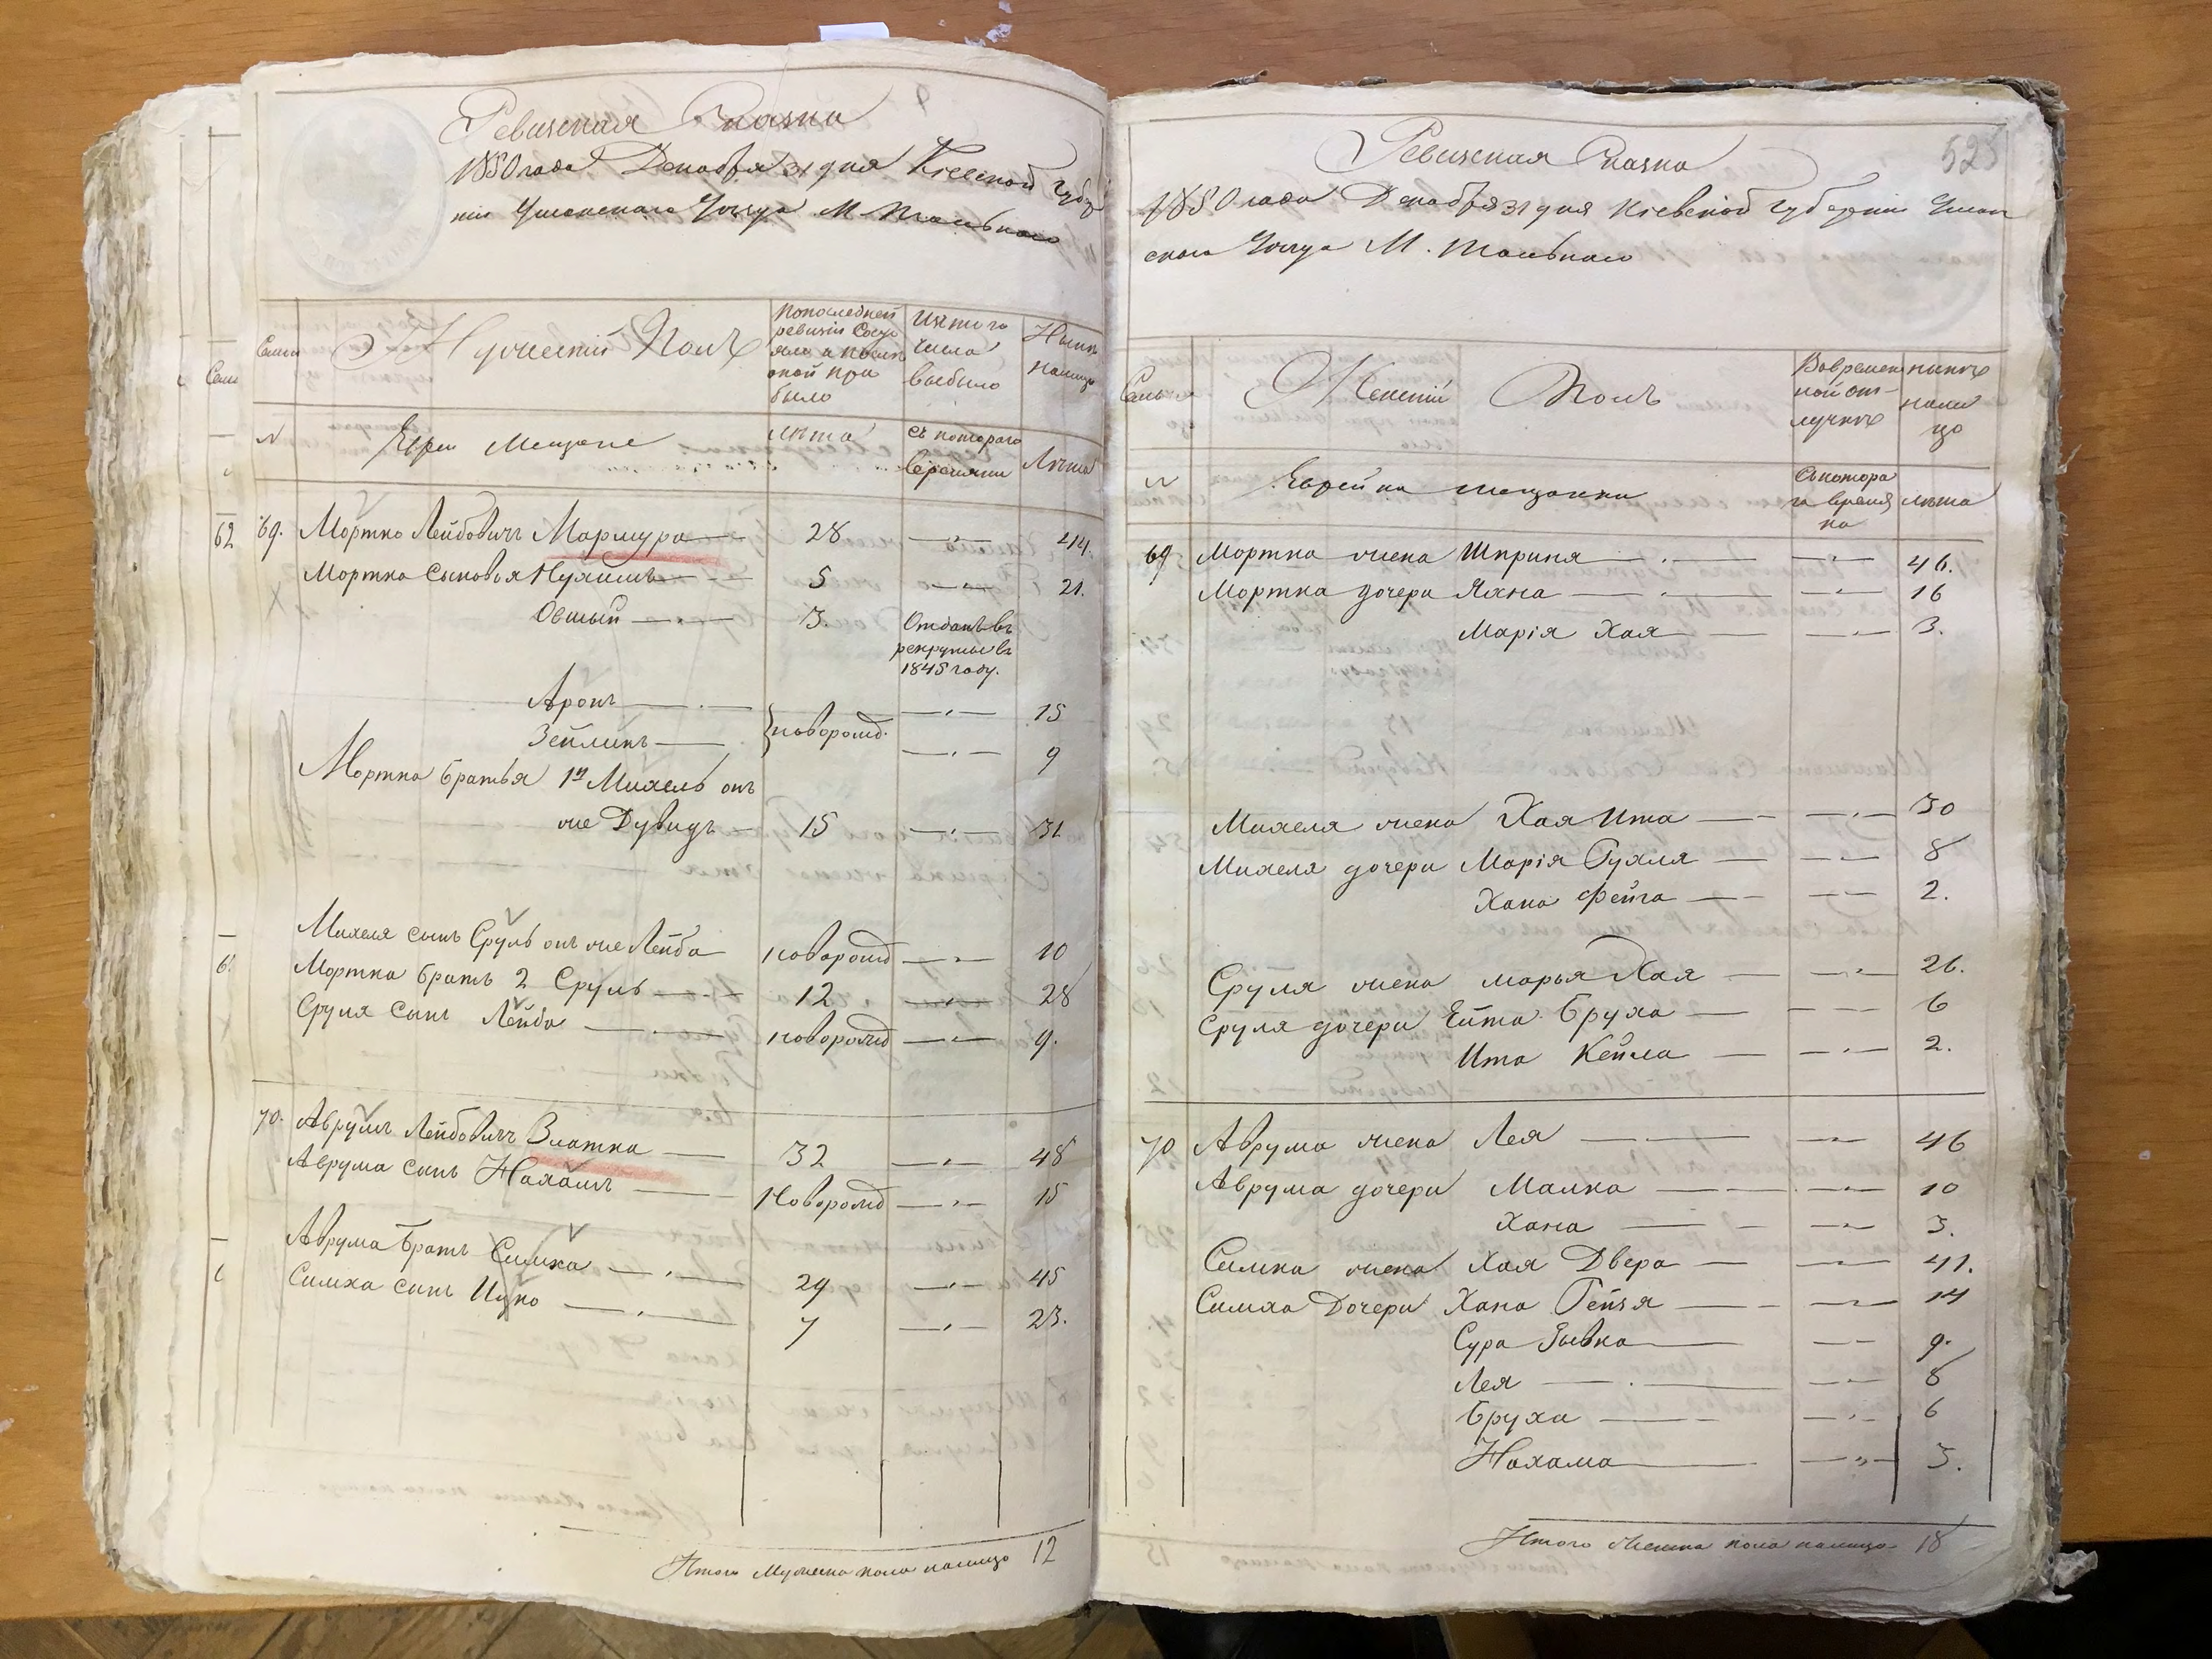 Ревизская Сказка
1850 года Декабря 31 дня Кіевской Губер
ніи Уманскаго Уѣзда М. Тальнаго
Семьи
Мужескій Полъ
Попоследней ревизіи Состо
яло и после
оной при
было
Изтого
числа
выбыло
Нынѣ
налицо
№
Евреи Мещане
лѣта
съ котораго
времяни
Лѣта
69. Мортко Лейбовичъ Мармура 28 44.
Мортка сыновья Нухимъ 5 21.
Овшый 3. Отданъ въ
рекруты въ
1845 году.
Аронъ новорожд. 15
Зейликъ 9
Мортка братья 1й Михель онъ
же Дувидъ 15 31
Михеля сынъ Сруль онъ же Лейба новорожд 10
Мортка братъ 2 Сруль 12 28
Сруля сынъ Лейба новорожд 9.
70. Аврумъ Лейбовичъ Златка 32 48
Аврума сынъ Нахамъ Новорожд 15
Аврума братъ Симха 29 45
Симха сынъ Ицко 7 23.
Итого Мужеска пола налицо 12
528
Ревизская Сказка
1850 года Декабря 31 дня Кіевской Губерніи Уман
скаго Уѣзда М. Тальнаго
Семья
Женскій Полъ
Вовремен
ной от-
лучкѣ
нынѣ
нали
цо
№
Еврейки мещанки
Скотора
го время
ни
лѣта
69 Мортка жена Шприня 46.
Мортка дочери Яхна 16
Марія Хая 3.
Михеля жена Хая Ита 30
Михеля дочери Марія Рухля 8
Хана Фейга 2.
Сруля жена Марья Хая 26.
Сруля дочери Ейта Бруха 6
Ита Кейла 2.
70 Аврума жена Лея 46
Аврума дочери Малка 10
Хана 3.
Симха жена Хая Двера 41.
Симха Дочери Хана Рейзя 14
Сура Рывка 9.
Лея 8
Бруха 6
Нахама 3.
Итого Женска пола налицо 18